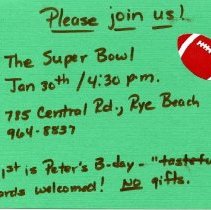 Please join us!
The Super Bowl
Jan 30th / 4:30 p.m.
785 Central Rd., Rye Beach
964-8837
1st is Peter's B-day - "tasteful
ards welcomed! NO gifts.